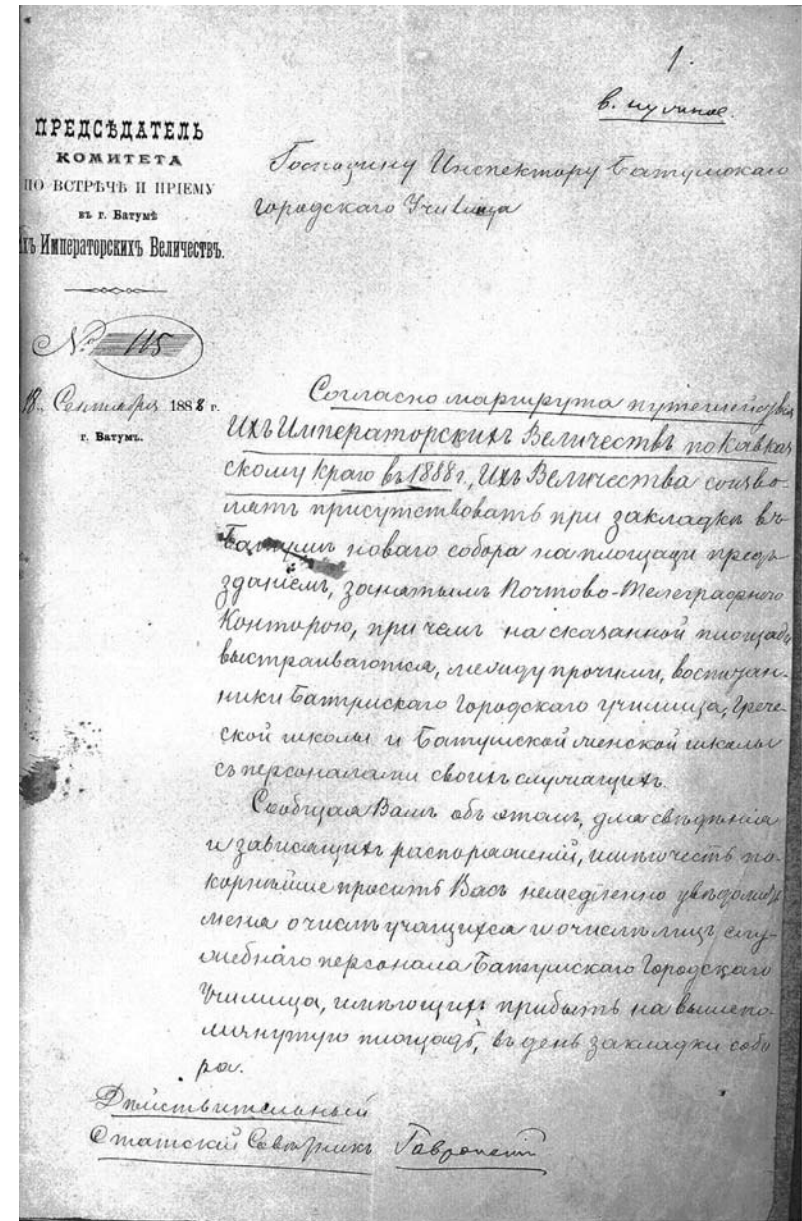 1.
ПРЕДСѢДАТЕЛЬ
КОМИТЕТА
ПО ВСТРѢЧѢ И ПРІЕМУ
въ г. Батумѣ
Ихъ Императорскихъ Величествъ.
№ 115
18 Сентября 1888 г.
г. Батумъ.
Господину Инспектору Батумскаго
Городскаго Училища
Согласно маршрута путешествія
Ихъ Императорскихъ Величествъ по Кавказ
скому краю въ 1888 г., Ихъ Величества соизво-
лятъ присутствовать при закладкѣ въ
Батумѣ новаго собора на площади предъ
зданіемъ, занятымъ Почтово-Телеграфною
Конторою, при чемъ на сказанной площади
выстраиваются, между прочими, воспитан-
ники Батумскаго Городскаго училища, Грече-
ской школы и Батумской женской школы
съ персоналами своихъ служащихъ.
Сообщая Вамъ объ этомъ, для свѣдѣнія
и зависящихъ распоряженій, имѣю честь по-
корнѣйше просить Васъ немедленно увѣдомить
меня о числѣ учащихся и о числѣ лицъ слу-
жебнаго персонала Батумскаго Городскаго
Училища, имѣющихъ прибыть на вышепо-
мянутую площадь, въ день закладки собо
ра.
Дѣйствительный
Статскій Совѣтникъ